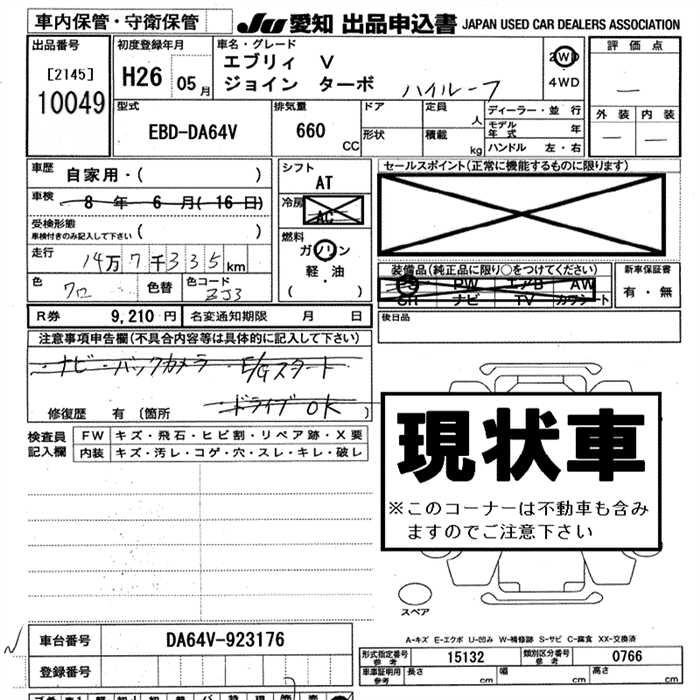 車内保管・守衛保管
JU 愛知 出品申込書 JAPAN USED CAR DEALERS ASSOCIATION
出品番号 [2145] 10049
初度登録年月 H26 05月
車名・グレード
エブリィ V
ジョイン ターボ ハイルーフ
2WD
4WD
評価点 —
外装 内装
— —
型式 EBD-DA64V
排気量 660 CC
ドア 定員 人
形状 積載 kg
ディーラー・並行
モデル年式 年
ハンドル 左・右
車歴 自家用・( )
車検 8年 6月( 16日)
受検形態
車検付きのみ記入して下さい ( )
走行 14万7千335km
色 クロ 色替 色コード ZJ3
R券 9,210円 名変通知期限 月 日
シフト AT
冷房 AC
燃料
ガソリン
軽・油
( )
セールスポイント(正常に機能するものに限ります)
装備品(純正品に限り○をつけてください)
PS PW エアB AW
SR ナビ TV カワシート
新車保証書
有・無
後日品
注意事項申告欄(不具合内容等は具体的に記入して下さい)
・ナビ・バックカメラ・E/Gスタート
・ドライブOK
修復歴 有 (箇所 )
検査員記入欄
FW キズ・飛石・ヒビ割・リペア跡・X要
内装 キズ・汚レ・コゲ・穴・スレ・キレ・破レ
現状車
※このコーナーは不動車も含み
ますのでご注意下さい
スペア
A-キズ E-エクボ U-凹み W-補修跡 S-サビ C-腐食 XX-交換済
車台番号 DA64V-923176
登録番号
形式指定番号 参考 15132 類別区分番号 参考 0766
車庫証明用 参考 長さ cm 幅 cm 高さ cm